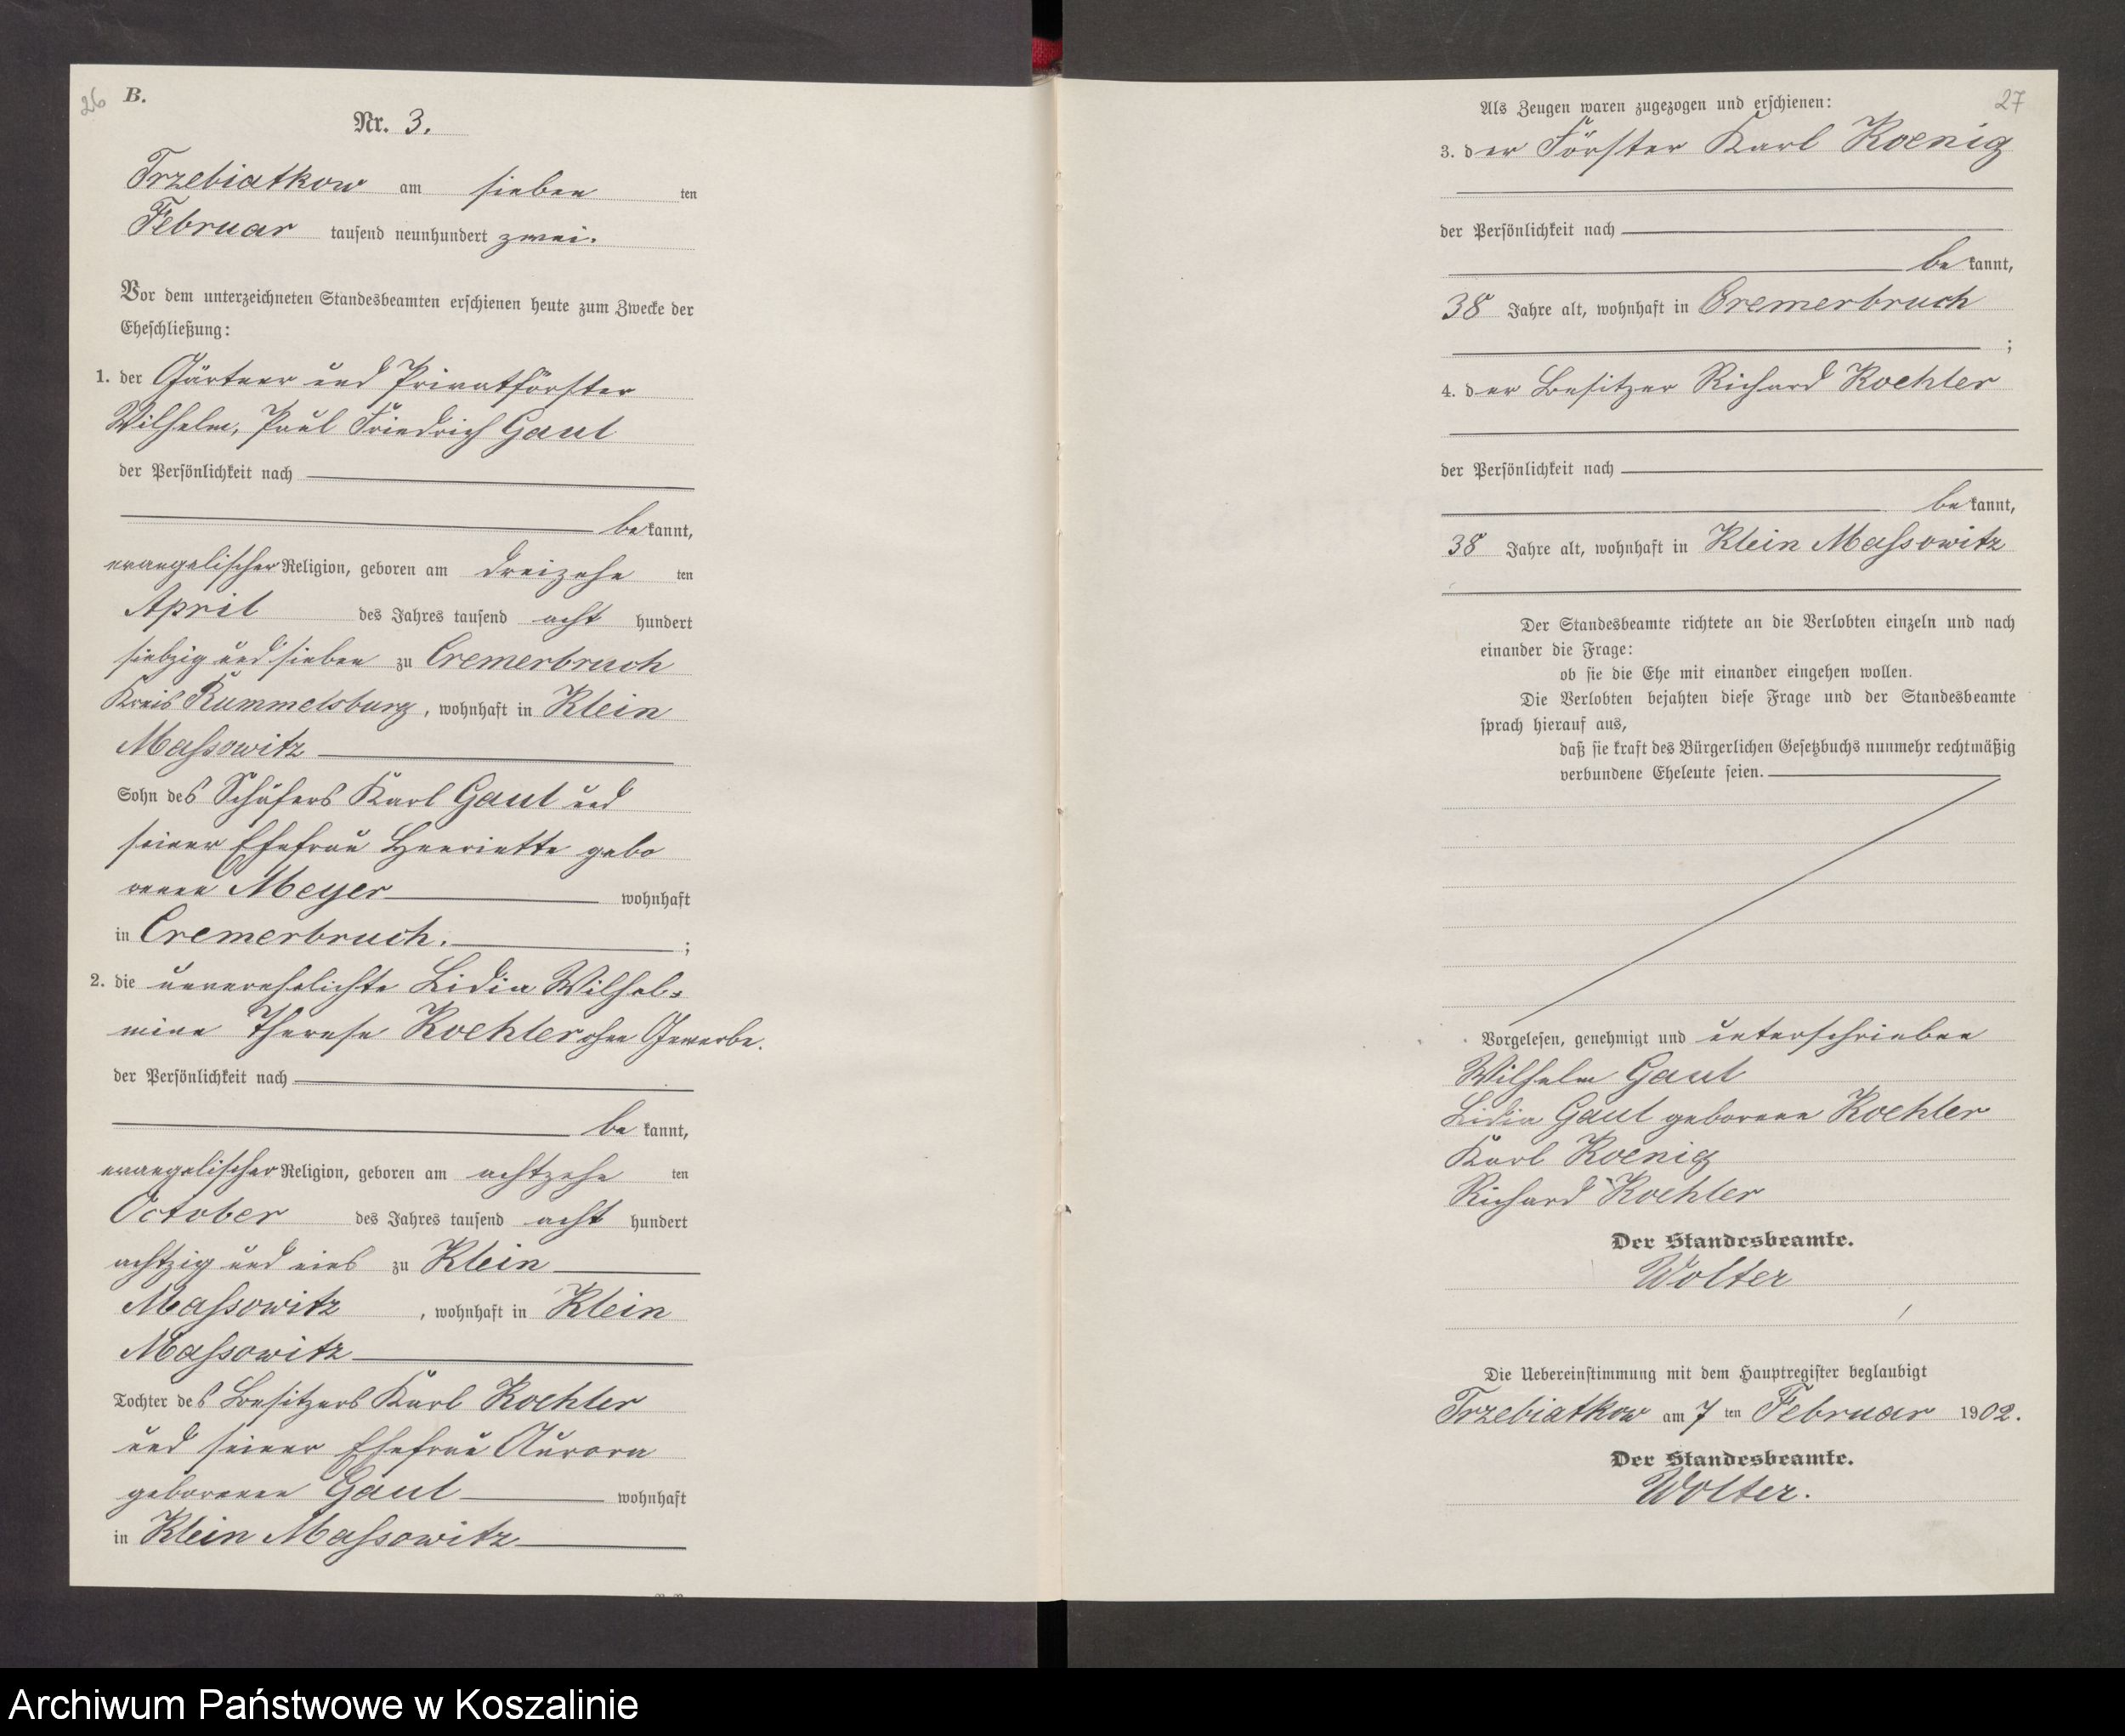 26
B.
Nr. 3.
Trzebiatkow am sieben ten
Februar tausend neunhundert zwei.
Vor dem unterzeichneten Standesbeamten erschienen heute zum Zwecke der
Eheschließung:
1. der Gärtner und Privatförster
Wilhelm, Paul Friedrich Gaul
der Persönlichkeit nach
be kannt,
evangelischer Religion, geboren am dreizehn ten
April des Jahres tausend acht hundert
siebzig und sieben zu Cremerbruch
Kreis Rummelsburg, wohnhaft in Klein
Massowitz
Sohn des Schäfers Karl Gaul und
seiner Ehefrau Henriette gebo
renen Meyer wohnhaft
in Cremerbruch. ;
2. die unverehelichte Lidia Wilhel-
mine Therese Koehler ohne Gewerbe.
der Persönlichkeit nach
be kannt,
evangelischer Religion, geboren am achtzehn ten
October des Jahres tausend acht hundert
achtzig und eins zu Klein
Massowitz, wohnhaft in Klein
Massowitz
Tochter des Besitzers Karl Koehler
und seiner Ehefrau Aurora
geborenen Gaul wohnhaft
in Klein Massowitz
27
Als Zeugen waren zugezogen und erschienen:
3. der Förster Karl Koenig
der Persönlichkeit nach
be kannt,
38 Jahre alt, wohnhaft in Cremerbruch
;
4. der Besitzer Richard Koehler
der Persönlichkeit nach
be kannt,
38 Jahre alt, wohnhaft in Klein Massowitz
Der Standesbeamte richtete an die Verlobten einzeln und nach
einander die Frage:
ob sie die Ehe mit einander eingehen wollen.
Die Verlobten bejahten diese Frage und der Standesbeamte
sprach hierauf aus,
daß sie kraft des Bürgerlichen Gesetzbuchs nunmehr rechtmäßig
verbundene Eheleute seien.
Vorgelesen, genehmigt und unterschrieben
Wilhelm Gaul
Lidia Gaul geborene Koehler
Karl Koenig
Richard Koehler
Der Standesbeamte.
Wolter
Die Uebereinstimmung mit dem Hauptregister beglaubigt
Trzebiatkow am 7 ten Februar 1902.
Der Standesbeamte.
Wolter.
Archiwum Państwowe w Koszalinie